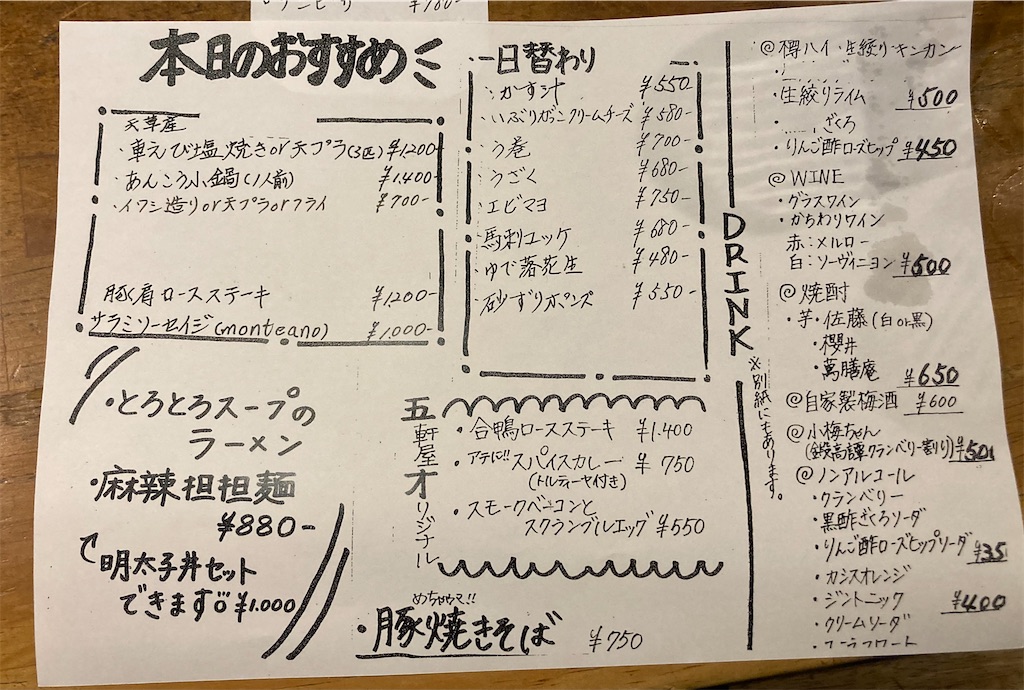 本日のおすすめ
天草産
・車えび塩焼きor天プラ(3匹) ¥1,200-
・あんこう小鍋(1人前) ¥1,400-
・イワシ造りor天プラorフライ ¥700-
豚肩ロースステーキ ¥1,200-
サラミソーセイジ(monteano) ¥1,000-
・とろとろスープの
ラーメン
・麻辣担担麺
¥880-
明太子丼セット
できます ¥1,000
一日替わり
・かす汁 ¥550-
・いぶりがっこクリームチーズ ¥580-
・う巻 ¥700-
・うざく ¥680-
・エビマヨ ¥750-
・馬刺ユッケ ¥680-
・ゆで落花生 ¥480-
・砂ずりポンズ ¥550-
五軒屋オリジナル
・合鴨ロースステーキ ¥1,400
・アテに!!スパイスカレー ¥750
(トルティーヤ付き)
・スモークベーコンと
スクランブルエッグ ¥550
めちゃウマ!!
・豚焼きそば ¥750
DRINK
※別紙にもあります。
@樽ハイ 生絞りキンカン
・生絞りライム ¥500
・ ざくろ
・りんご酢ローズヒップ ¥450
@WINE
・グラスワイン
・かちわりワイン
赤:メルロー
白:ソーヴィニヨン ¥500
@焼酎
・芋・佐藤(白or黒)
・櫻井
・萬膳庵 ¥650
@自家製梅酒 ¥600
@小梅ちゃん
(鍛高譚クランベリー割り) ¥50
@ノンアルコール
・クランベリー
・黒酢ざくろソーダ
・りんご酢ローズヒップソーダ ¥35
・カシスオレンジ
・ジントニック ¥400
・クリームソーダ